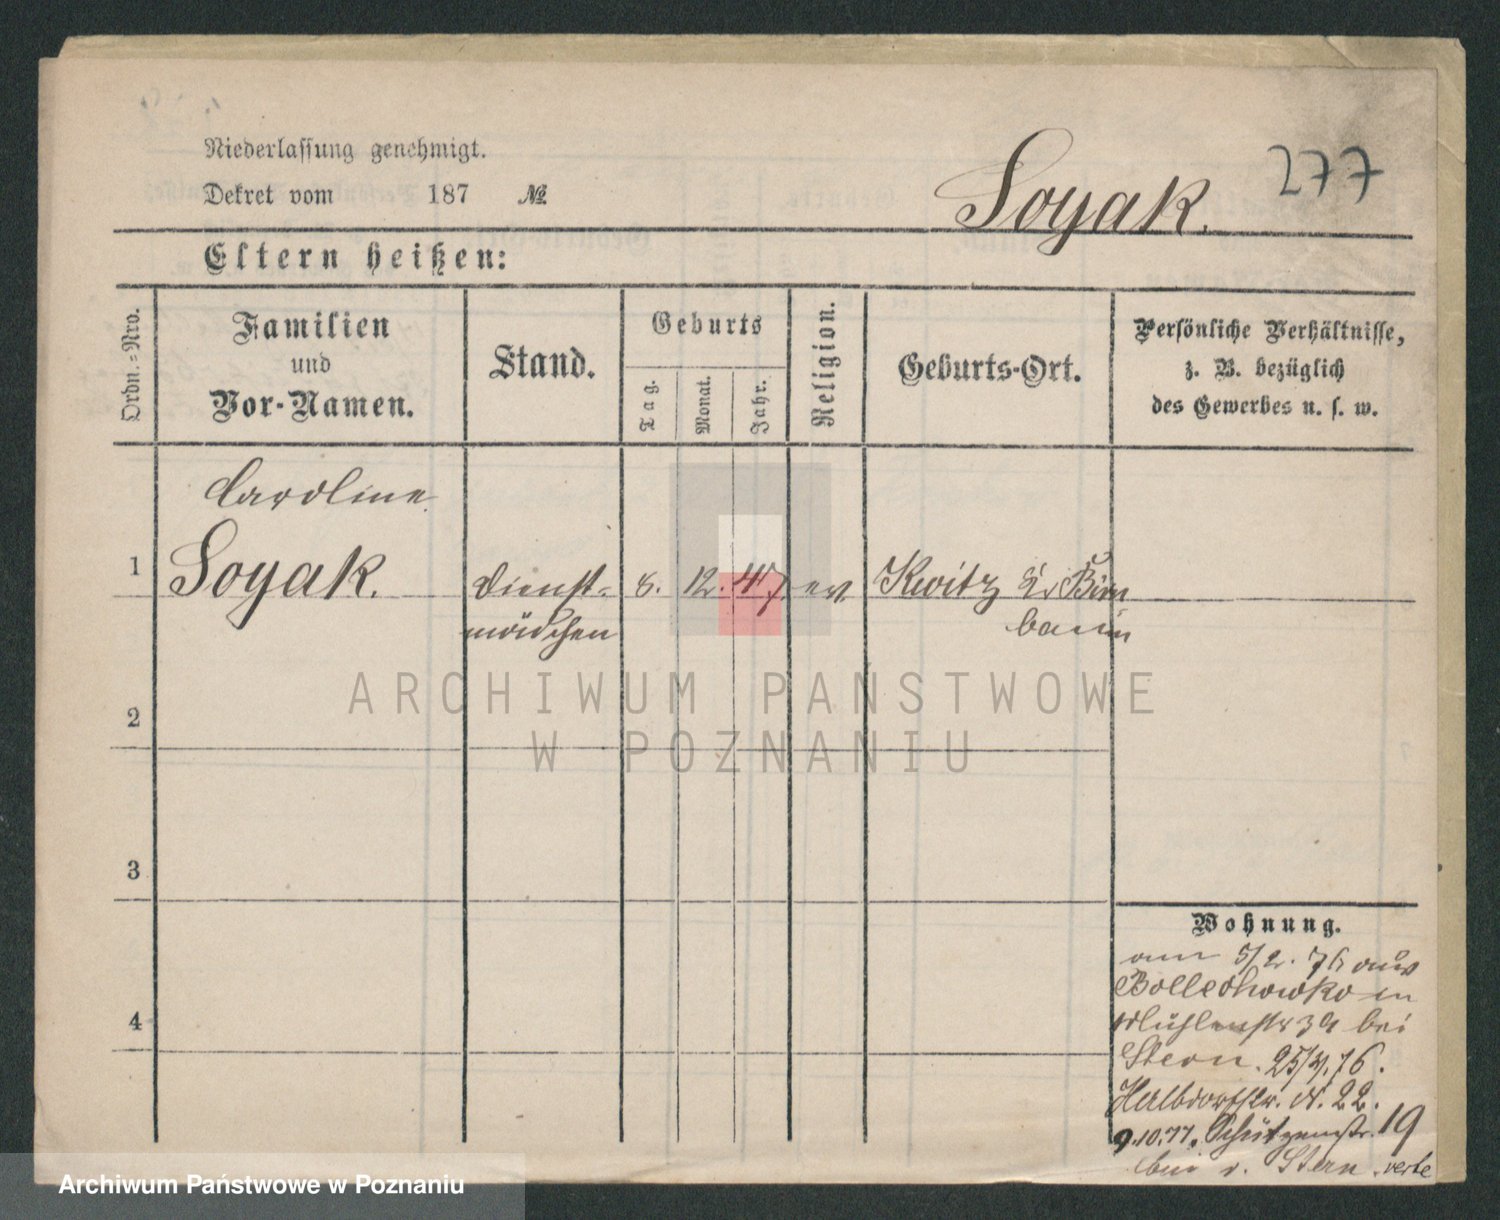 277
Niederlassung genehmigt.
Dekret vom 187 №
Soyak.
Eltern heißen:
Ordn.-Nro.
Familien
und
Vor-Namen.
Stand.
Geburts
Tag.
Monat.
Jahr.
Religion.
Geburts-Ort.
Persönliche Verhältnisse,
z. B. bezüglich
des Gewerbes u. s. w.
Caroline
1 Soyak. Dienst- 8. 12. 47. ev. Kwitz Kr Birn
mädchen baum
2
3
4
Wohnung.
am 5/2. 76 aus
Bollechowko in
Mühlenstr 39 bei
Stern. 25/3/.76.
Halbdorfstr. N. 22.
9.10.77. Schützenstr. 19
bei d. Stern. verte
ARCHIWUM PAŃSTWOWE
W POZNANIU
Archiwum Państwowe w Poznaniu